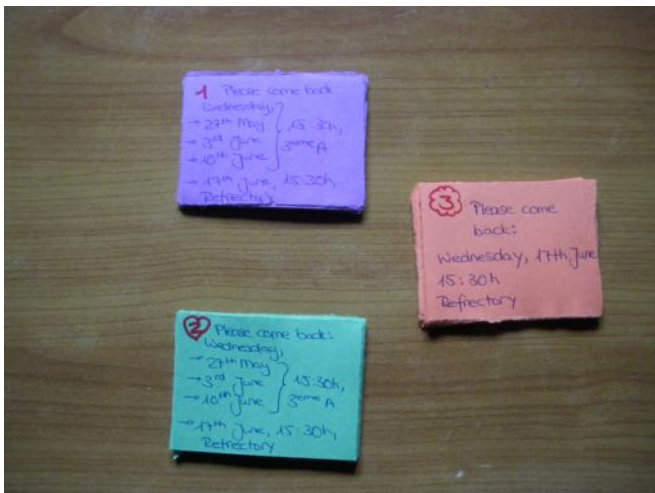 1 Please come back
Wednesday,
→ 27th May
→ 3rd June
→ 10th June
15:30h,
3eme A
→ 17th June, 15:30h,
Refrectory
3 Please come
back:
Wednesday, 17th June
15:30h
Refrectory
2 Please come back:
Wednesday,
→ 27th May
→ 3rd June
→ 10th June
15:30h,
3eme A
→ 17th June, 15:30h,
Refrectory